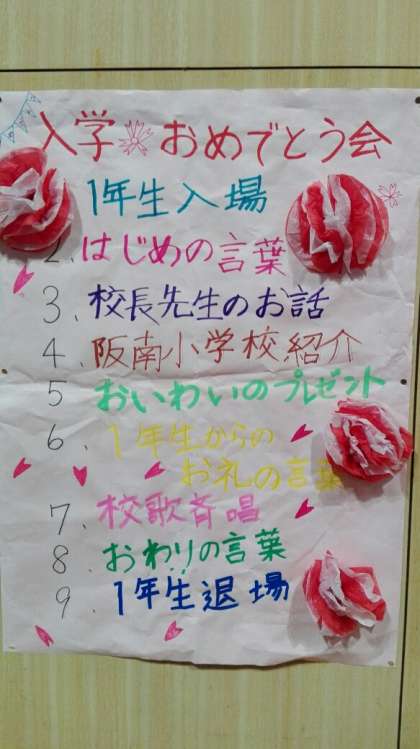 入学 おめでとう会
1年生入場
2、はじめの言葉
3、校長先生のお話
4、阪南小学校紹介
5 おいわいのプレゼント
6、1年生からの
お礼の言葉
7、校歌斉唱
8、おわりの言葉
9、1年生退場